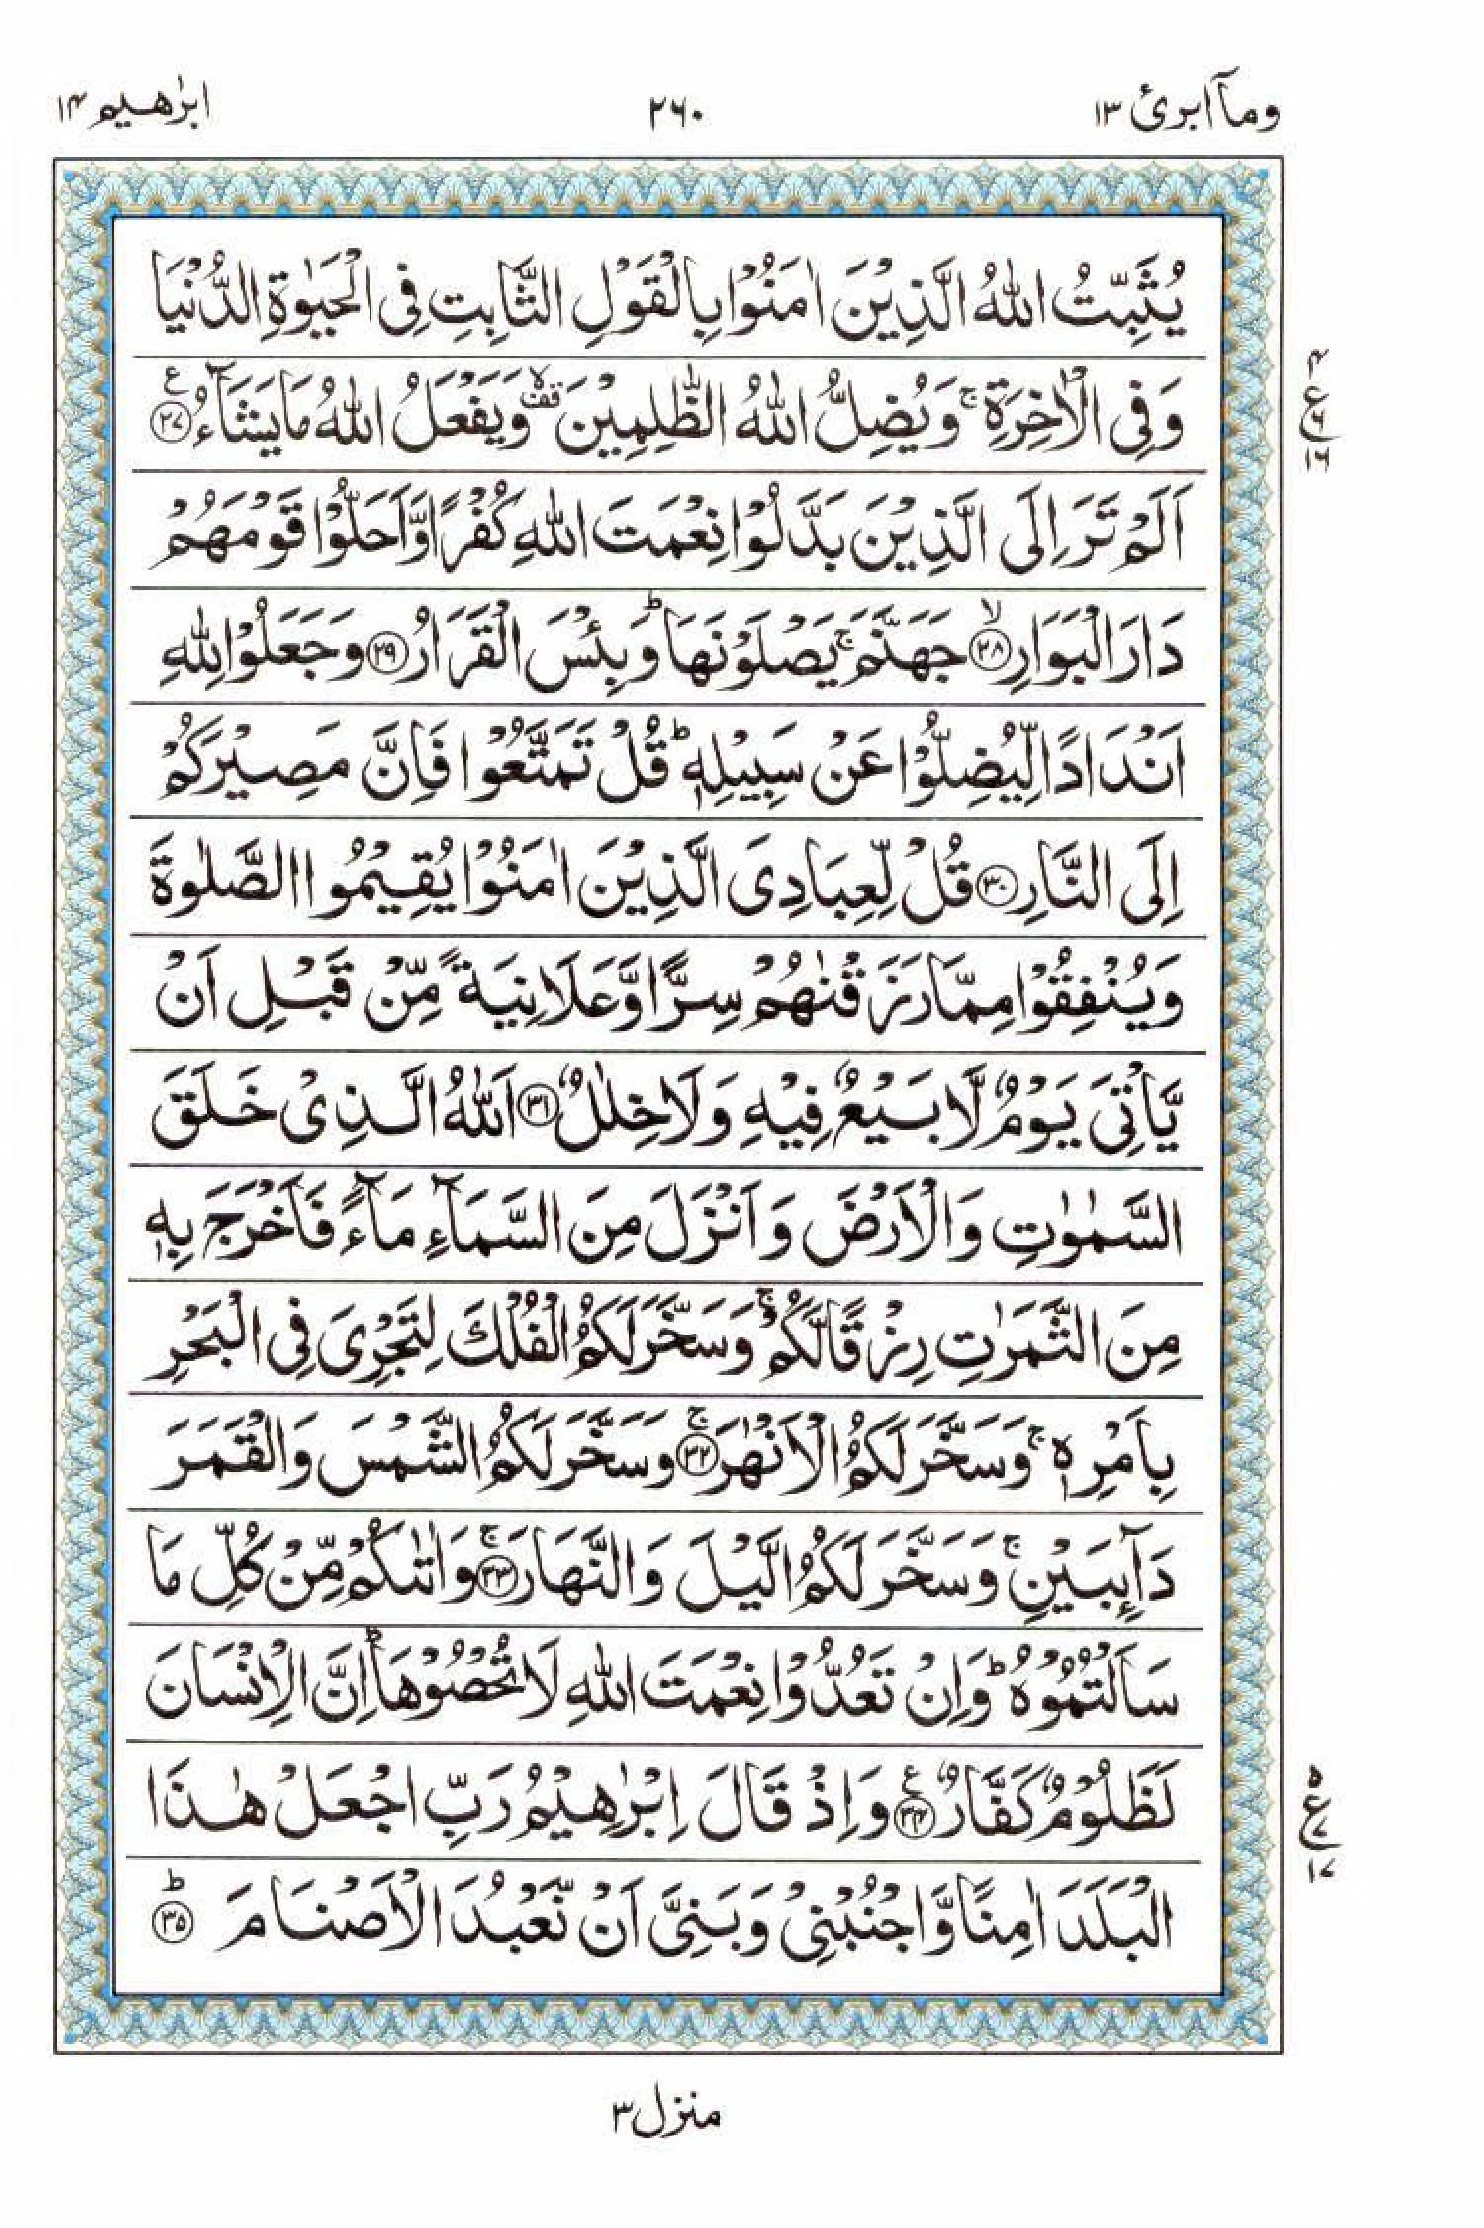 ومآ ابرئ ١٣
٢٦٠
ابرٰهيم ١٤
يُثَبِّتُ اللّٰهُ الَّذِيْنَ اٰمَنُوْا بِالْقَوْلِ الثَّابِتِ فِى الْحَيٰوةِ الدُّنْيَا
وَفِى الْاٰخِرَةِ ۚ وَيُضِلُّ اللّٰهُ الظّٰلِمِيْنَ ۙ وَيَفْعَلُ اللّٰهُ مَا يَشَآءُ ﴿٢٧﴾ ع
٤
ع
٦
١٦
اَلَمْ تَرَ اِلَى الَّذِيْنَ بَدَّلُوْا نِعْمَتَ اللّٰهِ كُفْرًا وَّاَحَلُّوْا قَوْمَهُمْ
دَارَ الْبَوَارِ ﴿٢٨﴾ ۙ جَهَنَّمَ ۚ يَصْلَوْنَهَا ؕ وَبِئْسَ الْقَرَارُ ﴿٢٩﴾ وَجَعَلُوْا لِلّٰهِ
اَنْدَادًا لِّيُضِلُّوْا عَنْ سَبِيْلِهٖ ؕ قُلْ تَمَتَّعُوْا فَاِنَّ مَصِيْرَكُمْ
اِلَى النَّارِ ﴿٣٠﴾ قُلْ لِّعِبَادِىَ الَّذِيْنَ اٰمَنُوْا يُقِيْمُوا الصَّلٰوةَ
وَيُنْفِقُوْا مِمَّا رَزَقْنٰهُمْ سِرًّا وَّعَلَانِيَةً مِّنْ قَبْلِ اَنْ
يَّاْتِىَ يَوْمٌ لَّا بَيْعٌ فِيْهِ وَلَا خِلٰلٌ ﴿٣١﴾ اَللّٰهُ الَّذِىْ خَلَقَ
السَّمٰوٰتِ وَالْاَرْضَ وَاَنْزَلَ مِنَ السَّمَآءِ مَآءً فَاَخْرَجَ بِهٖ
مِنَ الثَّمَرٰتِ رِزْقًا لَّكُمْ ۚ وَسَخَّرَ لَكُمُ الْفُلْكَ لِتَجْرِىَ فِى الْبَحْرِ
بِاَمْرِهٖ ۚ وَسَخَّرَ لَكُمُ الْاَنْهٰرَ ﴿٣٢﴾ ۚ وَسَخَّرَ لَكُمُ الشَّمْسَ وَالْقَمَرَ
دَآئِبَيْنِ ۚ وَسَخَّرَ لَكُمُ الَّيْلَ وَالنَّهَارَ ﴿٣٣﴾ ۚ وَاٰتٰكُمْ مِّنْ كُلِّ مَا
سَاَلْتُمُوْهُ ؕ وَاِنْ تَعُدُّوْا نِعْمَتَ اللّٰهِ لَا تُحْصُوْهَا ؕ اِنَّ الْاِنْسَانَ
لَظَلُوْمٌ كَفَّارٌ ﴿٣٤﴾ ع وَاِذْ قَالَ اِبْرٰهِيْمُ رَبِّ اجْعَلْ هٰذَا
٥
ع
٧
١٧
الْبَلَدَ اٰمِنًا وَّاجْنُبْنِىْ وَبَنِىَّ اَنْ نَّعْبُدَ الْاَصْنَامَ ﴿٣٥﴾ ؕ
منزل ٣